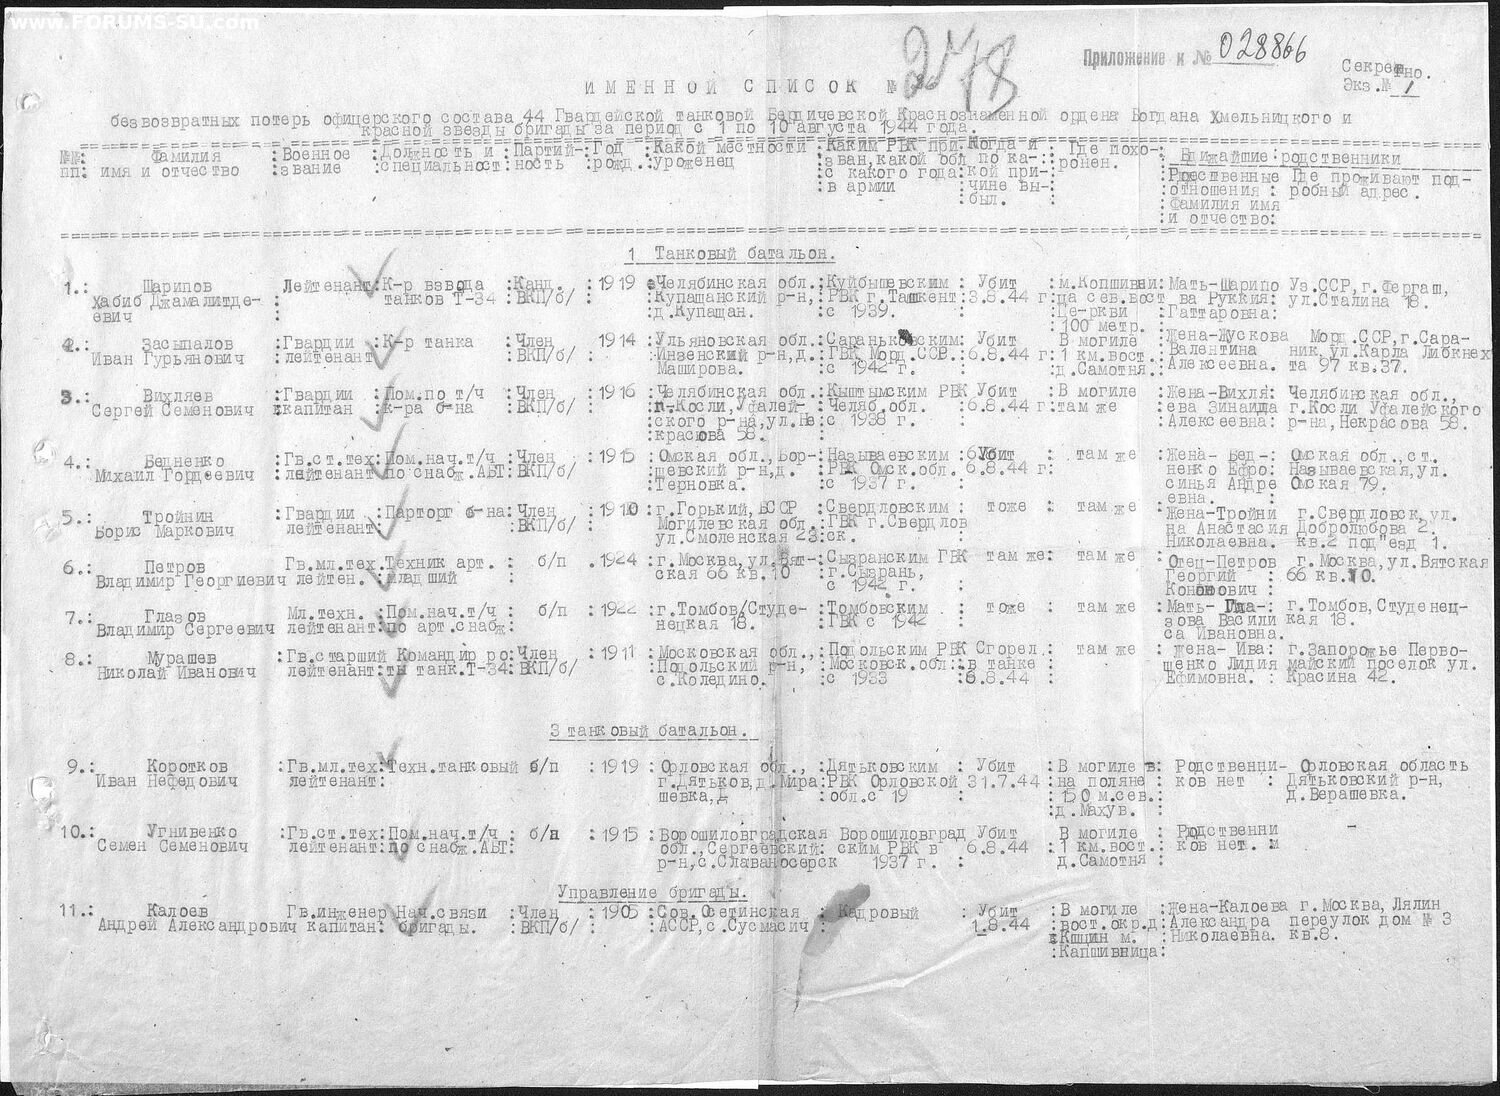 www.FORUMS-SU.com
Приложение к № 028866
Секретно.
Экз.№ 1
ИМЕННОЙ СПИСОК № 2478
безвозвратных потерь офицерского состава 44 Гвардейской танковой Бердичевской Краснознаменной ордена Богдана Хмельницкого и
красной звезды бригады за период с 1 по 10 августа 1944 года.
№№: Фамилия :Военное :Должность и :Партий-:Год :Какой местности :Каким РВК при:Когда и :Где похо- : Ближайшие:родственники
пп: имя и отчество :звание :специальност:ность :рожд.:уроженец :зван,какой обл по ка-:ронен. :Родственные Где проживают под-
:с какого года:кой при-: :отношения : робный адрес.
:в армии :чине вы-: :Фамилия имя
:был. : :и отчество:
1 Танковый батальон.
1.: Шарипов Лейтенант:К-р взвода :Канд. :1919 :Челябинская обл.:Куйбышевским : Убит :м.Копшивни:Мать-Шарипо Уз.ССР,г.Фергаш,
Хабиб Джамалитде- : танков Т-34 :ВКП/б/ : :Купащанский р-н,:РВК г.Ташкент:3.8.44 г:ца сев.вост ва Руккия: ул.Сталина 18.
евич : :д.Купащан. :с 1939. :Церкви :Гаттаровна:
:100 метр. :
2.: Засыпалов :Гвардии :К-р танка :Член 1914 :Ульяновская обл.:Сараньковским: Убит В могиле :Жена-Жускова Морд.ССР,г.Сара-
Иван Гурьянович :лейтенант :ВКП/б/ :Инзенский р-н,д.:ГВК Морд.ССР. :6.8.44 г:1 км.вост.:Валентина ник,ул.Карла Либкнех
Маширова. :с 1942 г. :д.Самотня.:Алексеевна. та 97 кв.37.
3.: Вихляев :Гвардии :Пом.по т/ч :Член :1916 :Челябинская обл.:Кыштымским РВК Убит :В могиле :Жена-Вихля: Челябинская обл.,
Сергей Семенович :капитан :к-ра б-на :ВКП/б/ : п.Косли,Уфалей-:Челяб.обл. :6.8.44 г:там же :ева Зинаида г.Косли Уфалейского
:ского р-на,ул.Не:с 1938 г. :Алексеевна: р-на,Некрасова 58.
:красова 58. :
4.: Бедненко :Гв.ст.тех:Пом.нач.т/ч :Член :1915 :Омская обл.,Бор-:Называевским :Убит : там же :Жена- Бед-: Омская обл.,ст.
Михаил Гордеевич :лейтенант :по снабж.АБТ:ВКП/б/ :шевский р-н,д. :РВК Омск.обл.:6.8.44 г: :ненко Ефро: Называевская,ул.
:Терновка. :с 1937 г. : :синья Андре Омская 79.
:евна. :
5.: Тройнин :Гвардии :Парторг б-на:Член :1910 :г.Горький,БССР :Свердловским : тоже : там же :Жена-Тройни г.Свердловск,ул.
Борис Маркович :лейтенант: :ВКП/б/ : :Могилевская обл.:ГВК г.Свердлов :на Анастасия Добролюбова 2.
ул.Смоленская 23:ск. :Николаевна. кв.2 под"езд 1.
6.: Петров Гв.мл.тех.Техник арт. : б/п .1924 :г.Москва,ул.Вят-:Сызранским ГВК там же: там же :Отец-Петров г.Москва,ул.Вятская
Владимир Георгиевич лейтен.:младший : :ская 66 кв.10 :г.Сызрань, :Георгий : 66 кв.10.
:с 1942 г. : Кононович :
7.: Глазов Мл.техн. :Пом.нач.т/ч : б/п :1922 :г.Томбов/Студе-:Томбовским : тоже : там же :Мать- Гла-: г.Томбов,Студенец-
Владимир Сергеевич лейтенант:по арт.снабж: :нецкая 18. :ГВК с 1942 :зова Васили :кая 18.
са Ивановна.
8.: Мурашев :Гв.старший Командир ро:Член :1911 :Московская обл.,:Подольским РВК Сгорел: там же : Жена- Ива: г.Запорожье Перво-
Николай Иванович :лейтенант:ты танк.Т-34:ВКП/б/ :Подольский р-н, :Московск.обл.:в танке : :щенко Лидия майский поселок ул.
:с.Коледино. :с 1933 :6.8.44 : Ефимовна. : Красина 42.
3 танковый батальон.
9.: Коротков :Гв.мл.тех:Техн.танковый б/п :1919 :Орловская обл.,:Дятьковским : Убит :В могиле в: Родственни- Орловская область
Иван Нефедович лейтенант: :г.Дятьков,д.Мира:РВК Орловской 31.7.44 :на поляне : ков нет : Дятьковский р-н,
шевка,Д :обл.с 19 :150 м.сев.: Д.Верашевка.
:д.Махув. :
10.: Угнивенко :Гв.ст.тех:Пом.нач.т/ч : б/п : 1915 :Ворошиловградская Ворошиловград Убит :В могиле : Родственни -
Семен Семенович :лейтенант:по снабж.АБТ: обл.,Сергеевский: ским РВК в :6.8.44 :1 км.вост.: ков нет.
р-н,с.Славаносерск 1937 г. : :д.Самотня :
Управление бригады.
11.: Калоев Гв.инженер Нач.связи :Член :1905 :Сов.Осетинская :Кадровый Убит :В могиле :Жена-Калоева г.Москва,Лялин
Андрей Александрович капитан: бригады. :ВКП/б/ : :АССР,с.Сусмасич: 1.8.44 :вост.окр.д:Александра переулок дом № 3
Кшцин м. :Николаевна. кв.8.
:Капшивница: